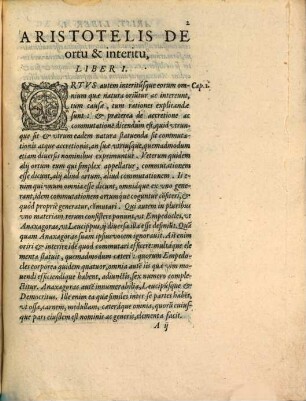 2
ARISTOTELIS DE
ortu & interitu,
LIBER I.
ORTVS autem interitúsque eorum om- Cap. 1.
nium quæ natura oriũtur ac intereunt,
tum causæ, tum rationes explicandæ
sunt: & præterea de accretione ac
commutatione dicendum est, quid vtrun-
que sit & vtrum eadem natura statuenda sit commuta-
tionis atque accretionis, an suæ vtriusque, quemadmodum
etiam diuersis nominibus exprimuntur. Veterum quidem
alij ortum eum qui simplex appellatur, commutationem
esse dicunt, alij aliud ortum, aliud commutationem. Ii e-
nim qui vnum omnia esse dicunt, omniáque ex vno gene-
rant, idem commutationem ortúmque cogũtur efficere, &
quod propriè generatur, cõmutari. Qui autem in pluribus
vno materiam rerum consistere ponunt, vt Empedocles, vt
Anaxagoras, vt Leucippus, ij diuersa illa esse defendunt. Quã-
quam Anaxagoras suam ipsus vocem ignorauit. Ait enim
oriri & interire idẽ quod commutari esse: vt multi quoque ele
menta statuit, quemadmodum cæteri: quorum Empedo-
cles corporea quidem quatuor, omnia autẽ iis quæ vim mo-
uendi efficiendíque habent, adiunctis, sex numero comple-
ctitur. Anaxagoras autẽ innumerabilia, Leucippúsque &
Democritus. Ille enim ea quæ similes inter se partes habẽt,
vt ossa, carnẽm, medullam, cæteráque omnia, quorũ cuius-
que pars eiusdem est nominis ac generis, elementa facit.
A ij